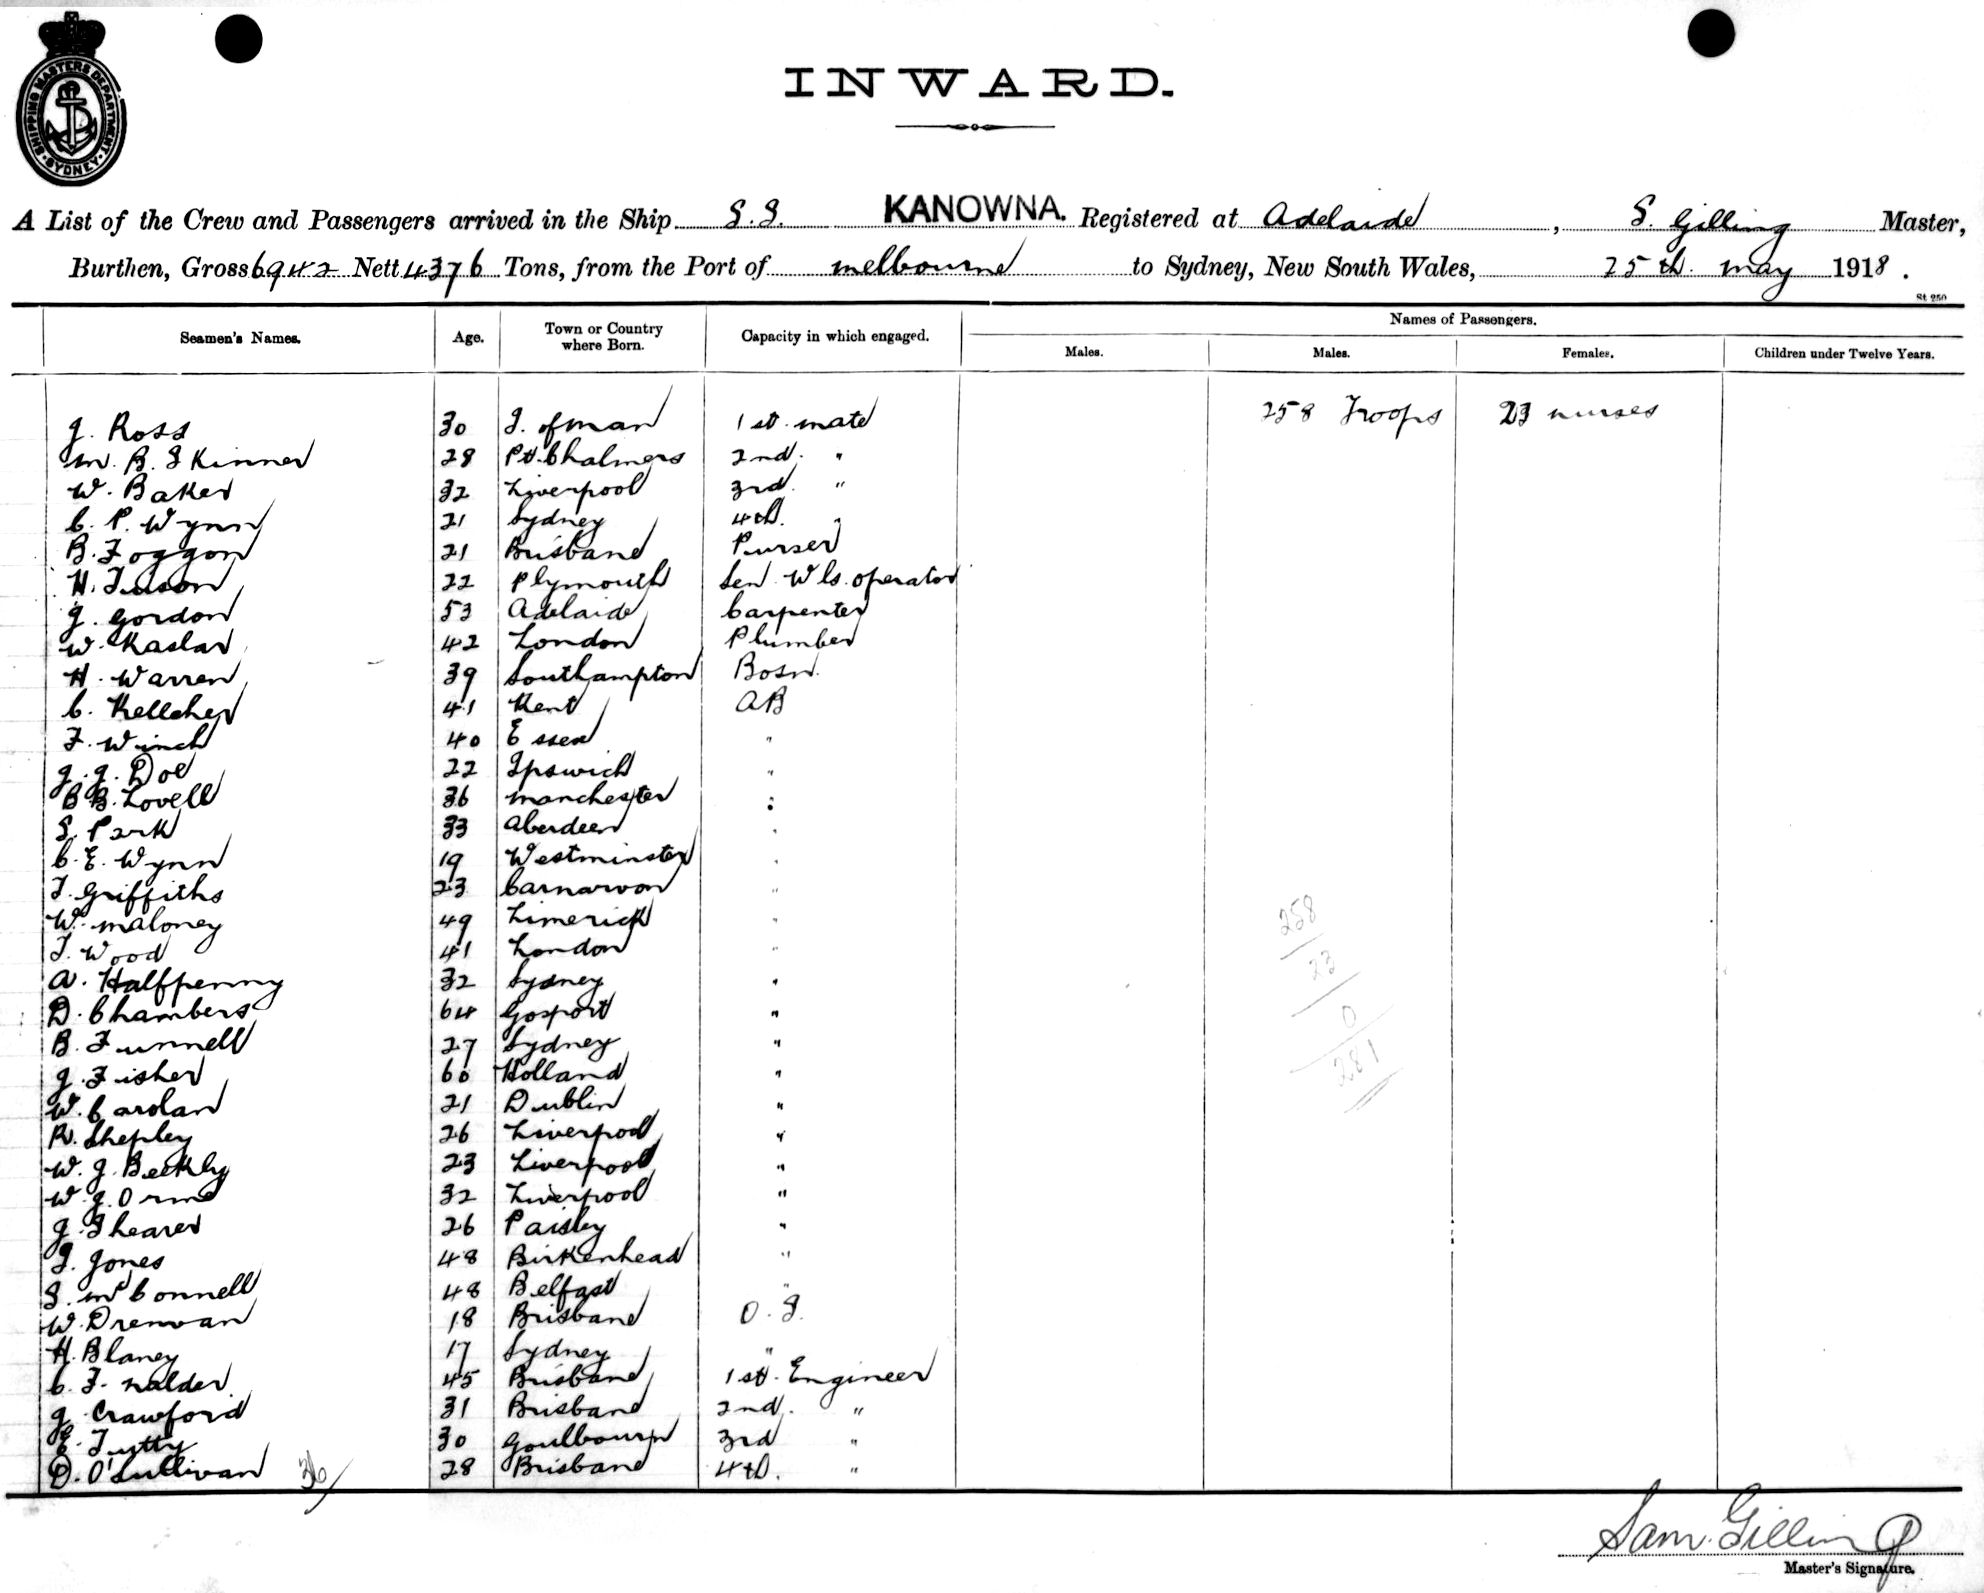 SHIPPING MASTERS DEPARTMENT. SYDNEY
INWARD.
A List of the Crew and Passengers arrived in the Ship S.S. KANOWNA. Registered at Adelaide, S. Gilling Master,
Burthen, Gross 6942 Nett 4376 Tons, from the Port of Melbourne to Sydney, New South Wales, 25th. May 1918.
St 250
Seamen's Names. Age. Town or Country where Born. Capacity in which engaged. Names of Passengers.
Males. Males. Females. Children under Twelve Years.
258 Troops 23 nurses
J. Ross 30 I. of man 1st. mate
M. B. Skinner 28 Pt. Chalmers 2nd. "
W. Baker 32 Liverpool 3rd. "
C. P. Wynn 21 Sydney 4th. "
B. Foggon 21 Brisbane Purser
H. 22 Plymouth Sen. Wls. operator
J. Gordon 53 Adelaide Carpenter
W. Kaslar 42 London Plumber
H. Warren 39 Southampton Bosn.
C. Kelleher 41 Kent AB
F. Winch 40 Essex "
J. J. Doe 22 Ipswich "
B B. Lovell 36 Manchester "
S. Park 33 Aberdeen "
C. E. Wynn 19 Westminster "
T. Griffiths 23 Carnarvon "
W. Maloney 49 Limerick "
T. Wood 41 London "
A. Halfpenny 32 Sydney "
D. Chambers 64 Gosport "
B. Funnell 27 Sydney "
J. Fisher 60 Holland "
W. Carolan 21 Dublin "
R. Shepley 26 Liverpool "
W. J. 23 Liverpool "
W. J. Orme 32 Liverpool "
J. Shearer 26 Paisley "
J. Jones 48 Birkenhead "
S. McConnell 48 Belfast "
W. Drennan 18 Brisbane O. S.
H. Blaney 17 Sydney "
C. F. Nalder 45 Brisbane 1st. Engineer
J. Crawford 31 Brisbane 2nd. "
Tutty 30 Goulbourn 3rd "
D. O'Sullivan 36/ 28 Brisbane 4th. "
258
23
0
281
Sam. Gilling
Master's Signature.